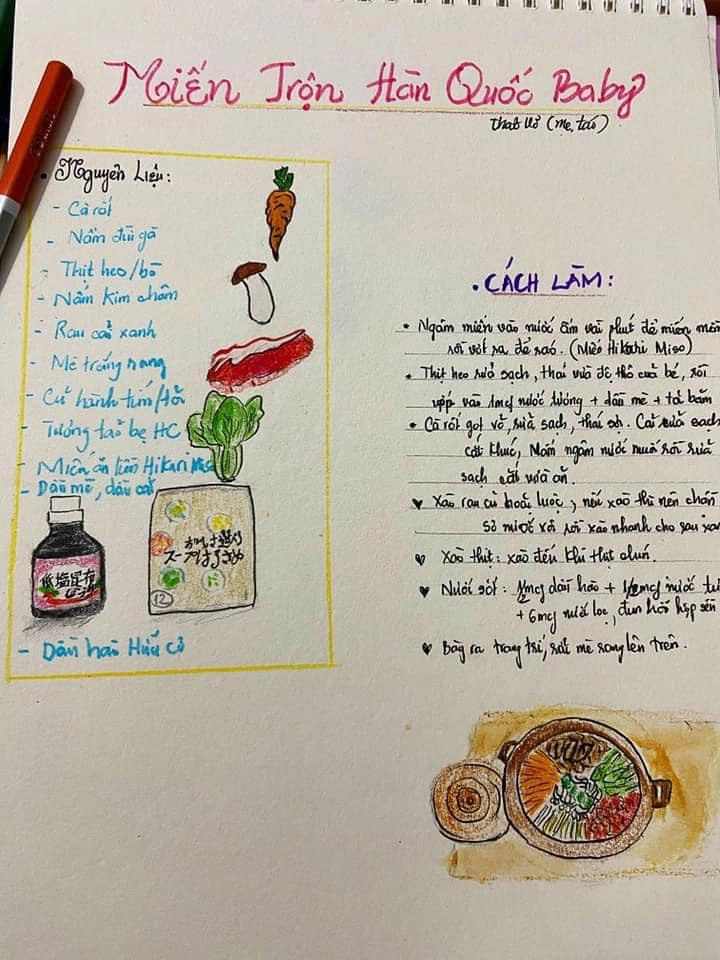 Miến Trộn Hàn Quốc Baby
Thảo Võ (mẹ táo)
• Nguyên Liệu:
- Cà rốt
- Nấm đùi gà
- Thịt heo/bò
- Nấm kim châm
- Rau cải xanh
- Mè trắng rang
- Củ hành tím/tỏi
- Tương tảo bẹ HC
- Miến ăn liền Hikari Miso
- Dầu mè, dầu cải
低塩昆布
スープはるさめ
12
- Dầu hào Hữu cơ
• CÁCH LÀM:
• Ngâm miến vào nước ấm vài phút để miến mềm
rồi vớt ra để ráo. (Miến Hikari Miso)
• Thịt heo rửa sạch, thái vừa độ thô của bé, rồi
ướp vào 1mcf nước tương + dầu mè + tỏi băm
• Cà rốt gọt vỏ, rửa sạch, thái sợi. Cải rửa sạch
cắt khúc, Nấm ngâm nước muối rồi rửa
sạch cắt vừa ăn.
♥ Xào rau củ hoặc luộc, nếu xào thì nên chần
sơ mới rồi xào nhanh cho rau xan
♥ Xào thịt: xào đến khi thịt chín.
♥ Nước sốt: 1/2mcf dầu hào + 1/2mcf nước tư
+ 6mcf nước lọc, đun hỗn hợp sền
♥ Bày ra trang trí, rắc mè rang lên trên.